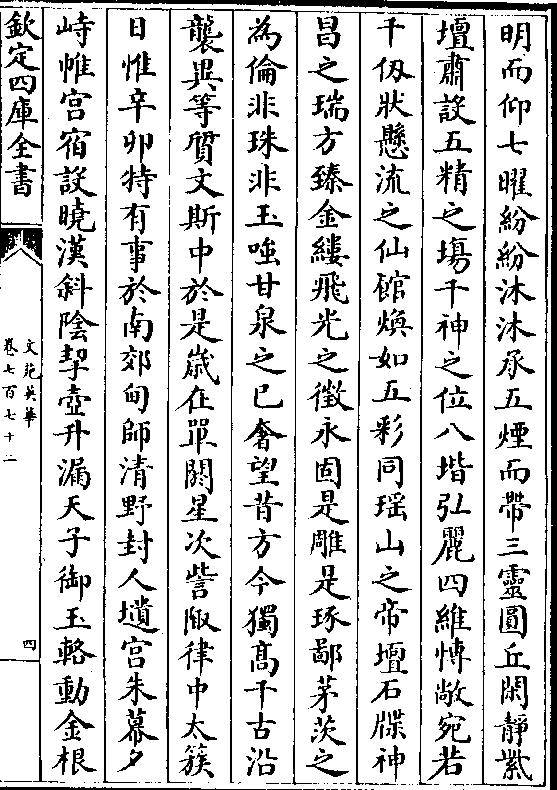 明而仰七曜紛紛沐沐承五煙而帶三靈圓丘閑靜紫
壇肅設五精之塲千神之位八堦弘麗四維博敞宛若
千仭狀懸流之仙館煥如五彩同瑶山之帝壇石牒神
昌之瑞方臻金縷飛光之徴永固是雕是琢鄙茅茨之
為倫非珠非玉嗤甘泉之已奢望昔方今獨髙千古沿
襲異等質文斯中於是歳在單閼星次訾陬律中太簇
日惟辛卯特有事於南郊甸師清野封人壝宫朱幕夕
峙帷宫宿設曉漢斜陰挈壺升漏天子御玉輅動金根
欽定四庫全書
文苑英華
卷七百七十二
四